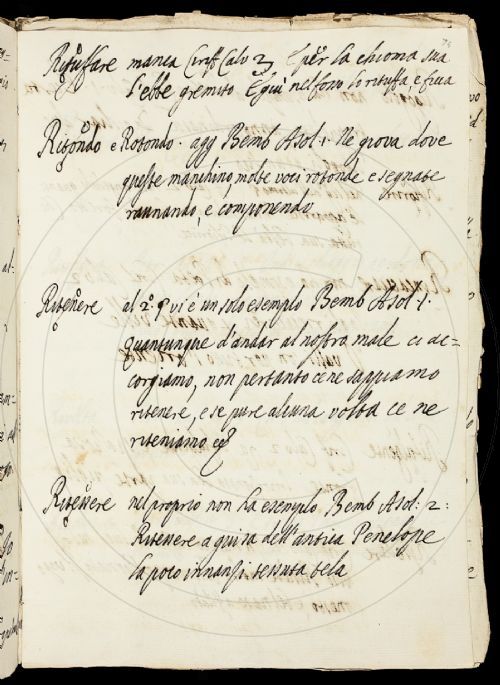 Rituffare manca Ciriff. Calv. 3 E per la chioma sua
l'ebbe gremito E giù nel fosso lo rituffa, e ficca
Ritondo e Rotondo. agg Bemb Asol. 1. Ne giova dove
queste manchino, molte voci rotonde e segnate
raunando, e componendo
Ritenere al 2.° § vi è un solo esempio Bemb Asol. 1.
Quantunque d'andar al nostro male ci ac=
corgiamo, non pertanto ce ne sappiamo
ritenere, e se pure alcuna volta ce ne
riteniamo
Ritessere nel proprio non ha esempio Bemb Asol: 2:
Ritessere a guisa dell'antica Penelope
la poco innanzi tessuta tela